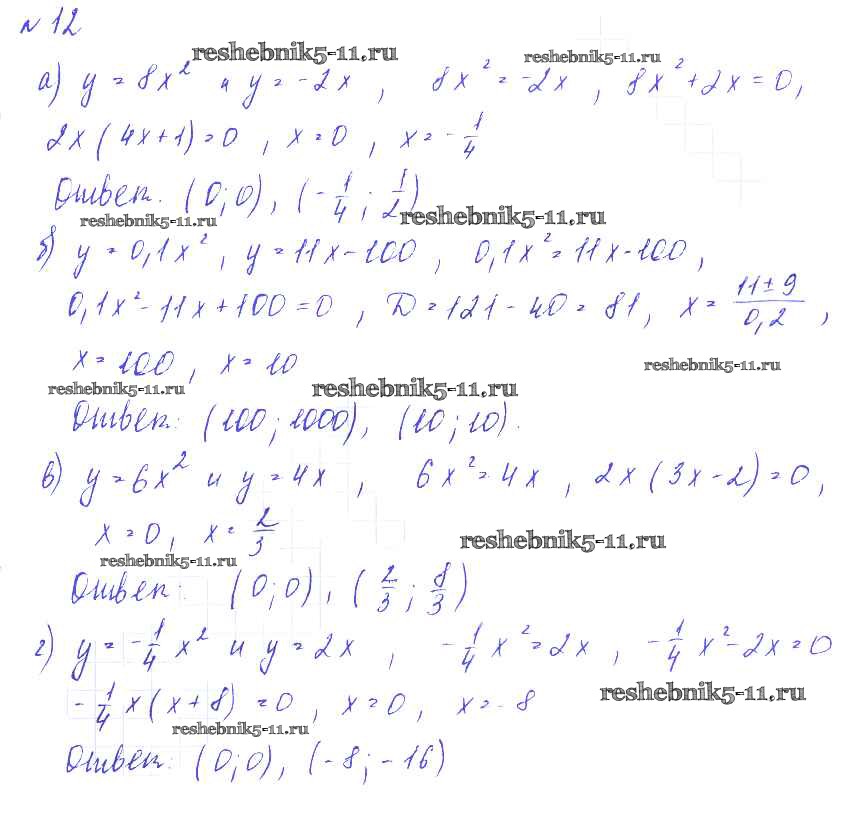 №12
reshebnik5-11.ru reshebnik5-11.ru
а) y = 8x² и y = -2x, 8x² = -2x, 8x² + 2x = 0,
2x(4x+1) = 0, x = 0, x = -1/4
Ответ. (0;0), (-1/4; 1/2)
reshebnik5-11.ru reshebnik5-11.ru
б) y = 0,1x², y = 11x - 100, 0,1x² = 11x - 100,
0,1x² - 11x + 100 = 0, D = 121 - 40 = 81, x = (11 ± 9)/0,2,
x = 100, x = 10 reshebnik5-11.ru
reshebnik5-11.ru reshebnik5-11.ru
Ответ: (100; 1000), (10; 10).
в) y = 6x² и y = 4x, 6x² = 4x, 2x(3x-2) = 0,
x = 0, x = 2/3 reshebnik5-11.ru
reshebnik5-11.ru
Ответ: (0;0), (2/3; 8/3)
г) y = -1/4 x² и y = 2x, -1/4 x² = 2x, -1/4 x² - 2x = 0
-1/4 x(x+8) = 0, x = 0, x = -8 reshebnik5-11.ru
reshebnik5-11.ru
Ответ: (0;0), (-8; -16)